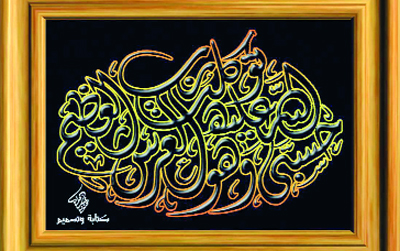 حسبي الله عليه توكلت وهو رب العرش العظيم
كتابة وتصميم